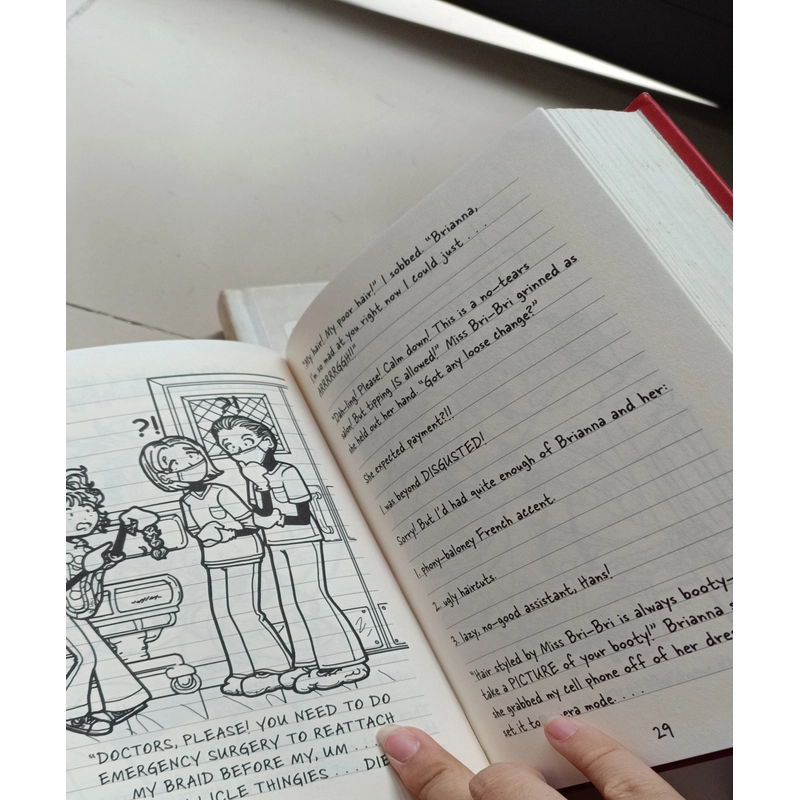 ?!
?!
"DOCTORS, PLEASE! YOU NEED TO DO
EMERGENCY SURGERY TO REATTACH
MY BRAID BEFORE MY, UM . . .
LICLE THINGIES . . . DIE
"My hair! My poor hair!" I sobbed. "Brianna,
I'm so mad at you right now I could just . . .
ARRRRGGH!!"
"Dah-ling! Please! Calm down! This is a no-tears
salon! But tipping IS allowed!" Miss Bri-Bri grinned as
she held out her hand. "Got any loose change?"
She expected payment?!!
I was beyond DISGUSTED!
Sorry! But I'd had quite enough of Brianna and her:
1. phony-baloney French accent.
2. ugly haircuts.
3. lazy, no-good assistant, Hans!
"Hair styled by Miss Bri-Bri is always booty-
take a PICTURE of your booty!" Brianna s
she grabbed my cell phone off of her dre
set it to era mode. . . .
29